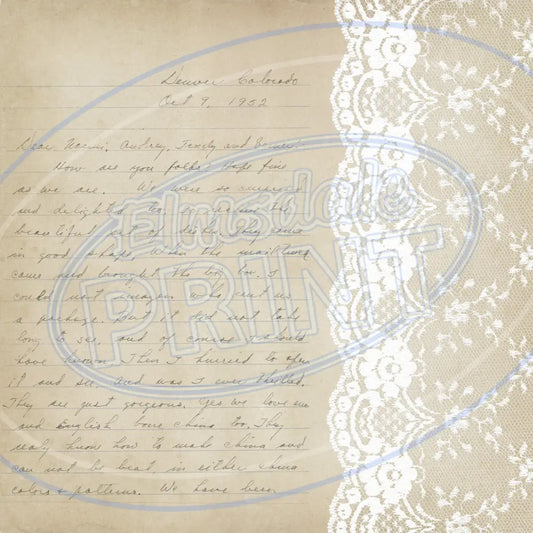 Denver Colorado
Oct 9, 1952
Dear Naomi, Audrey, Trudy and
How are you folks? Hope fine
as we are. We were so surprised
and delighted to the
beautiful set of dishes. They came
in good shape. When the mailman
came and brought the big box. I
could not imagine who sent us
a package. But it did not take
long to see, and of course I should
have known. Then I hurried to open
it and see. And was I ever thrilled.
They are just gorgeous. Yes we love
and English bone china too. They
realy know how to make china and
can not be beat in either china
colors & patterns. We have been
Elmsdale
PRINT